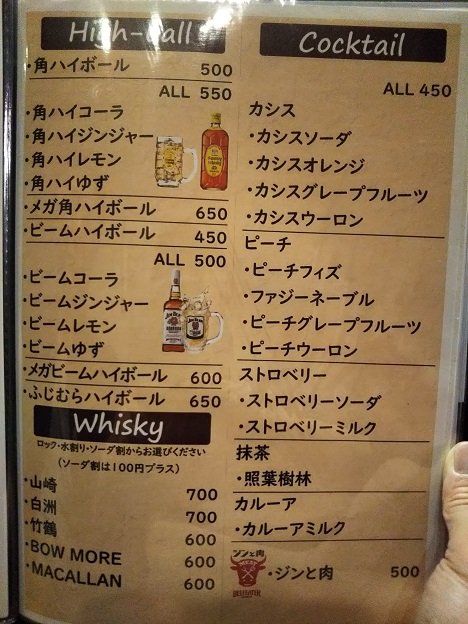 High-Ball
・角ハイボール 500
ALL 550
・角ハイコーラ
・角ハイジンジャー
・角ハイレモン
・角ハイゆず
・メガ角ハイボール 650
・ビームハイボール 450
ALL 500
・ビームコーラ
・ビームジンジャー
・ビームレモン
・ビームゆず
・メガビームハイボール 600
・ふじむらハイボール 650
Whisky
ロック・水割り・ソーダ割からお選びください
（ソーダ割は100円プラス）
・山崎 700
・白洲 700
・竹鶴 600
・BOW MORE 600
・MACALLAN 600
Cocktail
ALL 450
カシス
・カシスソーダ
・カシスオレンジ
・カシスグレープフルーツ
・カシスウーロン
ピーチ
・ピーチフィズ
・ファジーネーブル
・ピーチグレープフルーツ
・ピーチウーロン
ストロベリー
・ストロベリーソーダ
・ストロベリーミルク
抹茶
・照葉樹林
カルーア
・カルーアミルク
ジンと肉
・ジンと肉 500
BEEFEATER